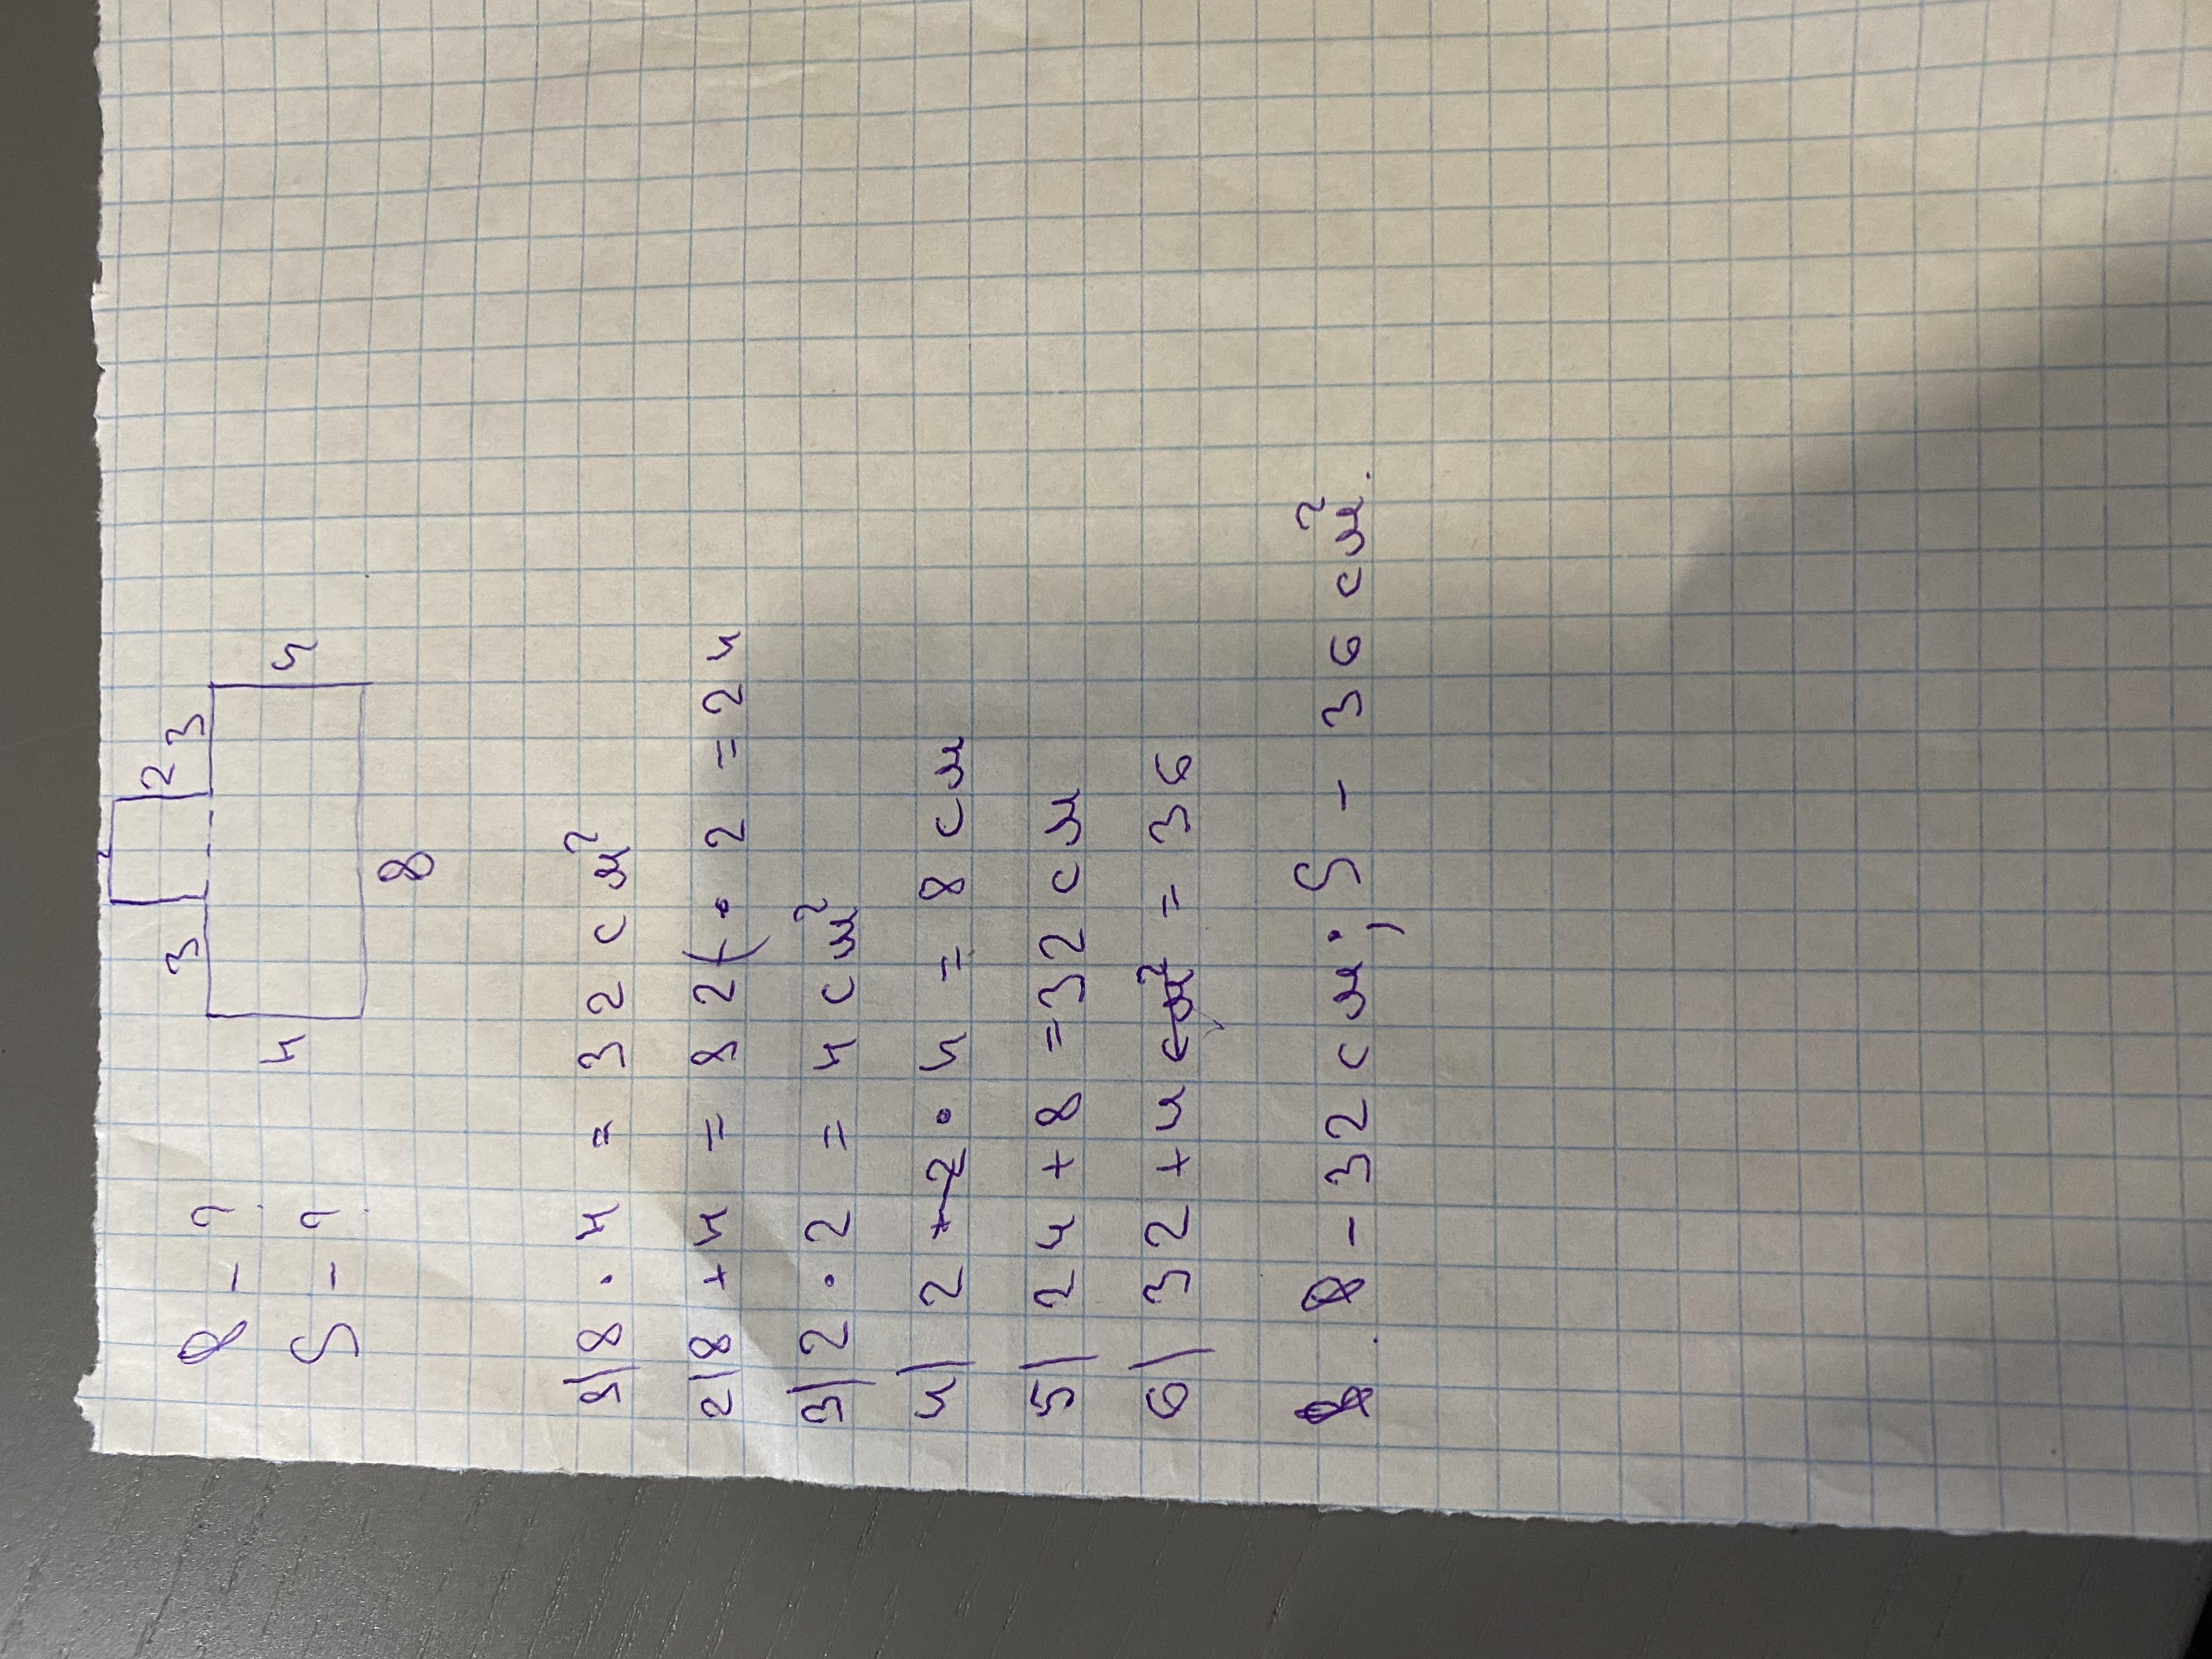 P - ?
S - ?
2
3 2 3
4 4
8
1) 8 · 4 = 32 см²
2) 8 + 4 = 82( · 2 = 24
3) 2 · 2 = 4 см²
4) 2 + 2 · 4 = 8 см
5) 24 + 8 = 32 см
6) 32 + 4 см² = 36
P - 32 см; S - 36 см².